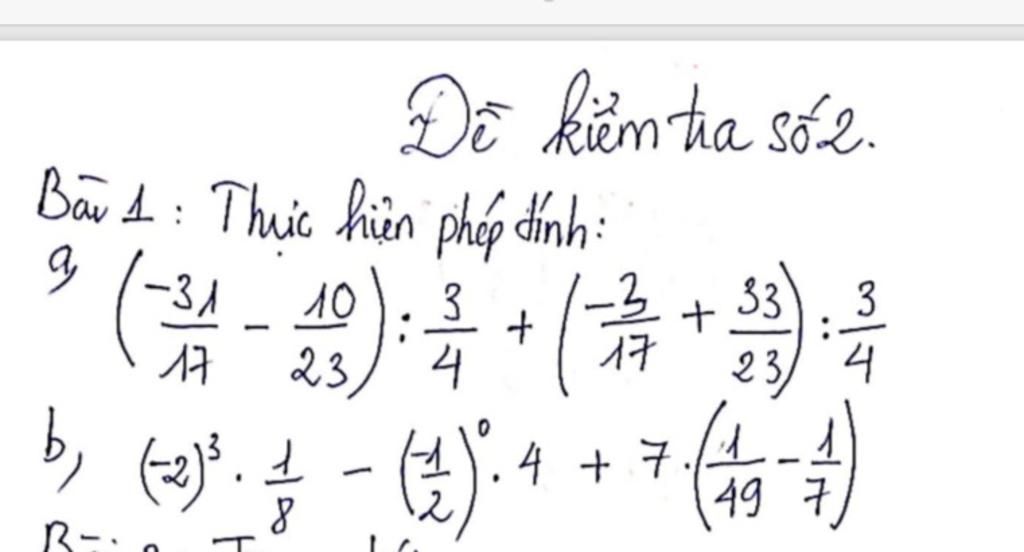 Đề kiểm tra số 2.
Bài 1: Thực hiện phép tính:
a, (-31/17 - 10/23) : 3/4 + (-3/17 + 33/23) : 3/4
b, (-2)³ . 1/8 - (-1/2)⁰ . 4 + 7 . (1/49 - 1/7)